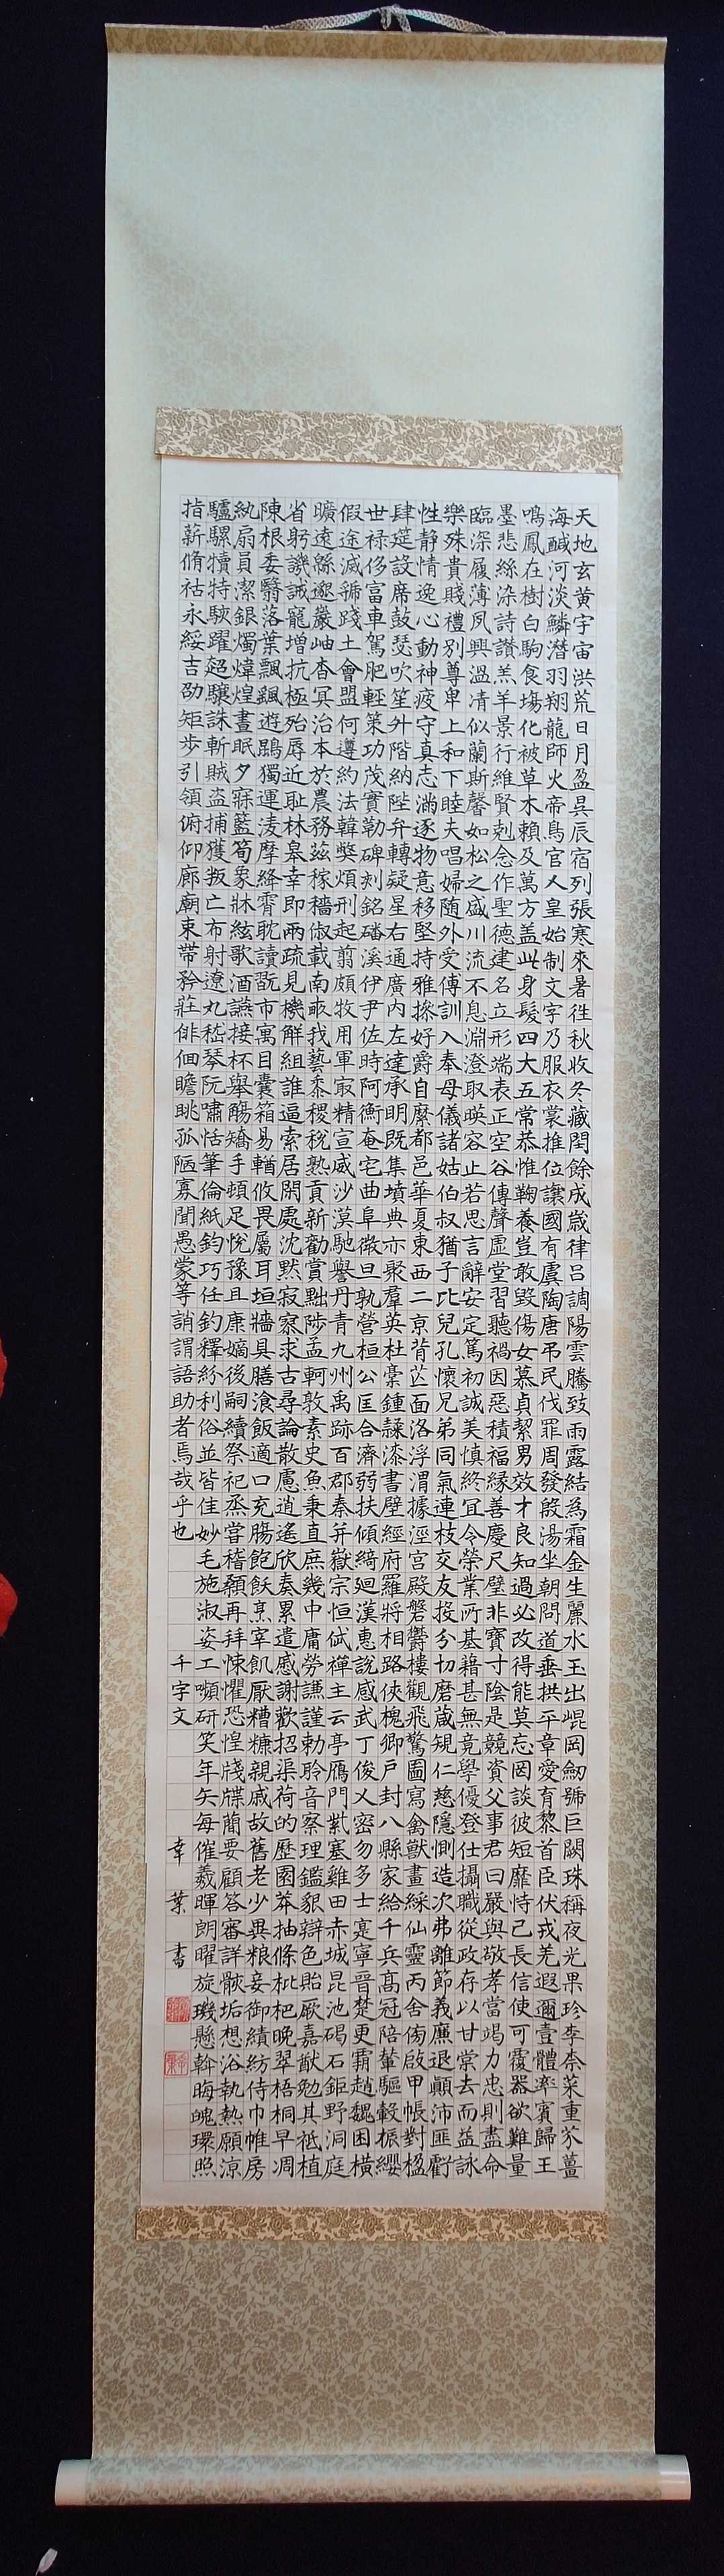 天地玄黄宇宙洪荒日月盈昃辰宿列張寒來暑徃秋收冬藏閏餘成歲律呂調陽雲騰致雨露結為霜金生麗水玉出崐岡劒號巨闕珠稱夜光果珍李柰菜重芥薑
海鹹河淡鱗潛羽翔龍師火帝鳥官人皇始制文字乃服衣裳推位讓國有虞陶唐弔民伐罪周發殷湯坐朝問道垂拱平章愛育黎首臣伏戎羌遐邇壹體率賓歸王
鳴鳳在樹白駒食場化被草木賴及萬方盖此身髮四大五常恭惟鞠養豈敢毀傷女慕貞絜男效才良知過必改得能莫忘罔談彼短靡恃己長信使可覆器欲難量
墨悲絲染詩讚羔羊景行維賢剋念作聖德建名立形端表正空谷傳聲虛堂習聽禍因惡積福緣善慶尺璧非寶寸陰是競資父事君曰嚴與敬孝當竭力忠則盡命
臨深履薄夙興溫凊似蘭斯馨如松之盛川流不息淵澄取暎容止若思言辭安定篤初誠美慎終宜令榮業所基藉甚無竟學優登仕攝職從政存以甘棠去而益詠
樂殊貴賤禮別尊卑上和下睦夫唱婦随外受傅訓入奉母儀諸姑伯叔猶子比兒孔懷兄弟同氣連枝交友投分切磨葴規仁慈隱惻造次弗離節義廉退顛沛匪虧
性静情逸心動神疲守真志滿逐物意移堅持雅操好爵自縻都邑華夏東西二京背芒面洛浮渭據涇宮殿磐欝樓觀飛驚圖寫禽獸畫綵仙靈丙舍傍啟甲帳對楹
肆筵設席鼓瑟吹笙升階納陛弁轉疑星右通廣內左達承明既集墳典亦聚羣英杜稾鍾隸漆書壁經府羅將相路俠槐卿戶封八縣家給千兵高冠陪輦驅轂振纓
世禄侈富車駕肥輕策功茂實勒碑刻銘磻溪伊尹佐時阿衡奄宅曲阜微旦孰營桓公匡合濟弱扶傾綺迴漢惠說感武丁俊乂密勿多士寔寧晉楚更霸趙魏困橫
假途滅虢踐土會盟何遵約法韓獘煩刑起翦頗牧用軍最精宣威沙漠馳譽丹青九州禹跡百郡秦并嶽宗恒岱禪主云亭鴈門紫塞雞田赤城昆池碣石鉅野洞庭
曠遠緜邈巖岫杳冥治本於農務茲稼穡俶載南畝我藝黍稷稅熟貢新勸賞黜陟孟軻敦素史魚秉直庶幾中庸勞謙謹勅聆音察理鑑貌辯色貽厥嘉猷勉其祗植
省躬譏誡寵增抗極殆辱近耻林皋幸即兩疏見機解組誰逼索居閑處沈默寂寥求古尋論散慮逍遙欣奏累遣慼謝歡招渠荷的歷園莽抽條枇杷晚翠梧桐早凋
陳根委翳落葉飄颻遊鵾獨運凌摩絳霄耽讀翫市寓目囊箱易輶攸畏屬耳垣牆具膳飡飯適口充腸飽飫烹宰飢厭糟糠親戚故舊老少異粮妾御績紡侍巾帷房
紈扇員潔銀燭煒煌晝眠夕寐籃筍象牀絃歌酒讌接杯舉觴矯手頓足悅豫且康嫡後嗣續祭祀烝嘗稽顙再拜悚懼恐惶牋牒簡要顧答審詳骸垢想浴執熱願涼
驢騾犢特駭躍超驤誅斬賊盗捕獲叛亡布射遼丸嵇琴阮嘯恬筆倫紙鈞巧任釣釋紛利俗並皆佳妙毛施淑姿工嚬研笑年矢每催羲暉朗曜旋璣懸斡晦魄環照
指薪脩祜永綏吉劭矩步引領俯仰廊廟束帶矜莊俳佪瞻眺孤陋寡聞愚蒙等誚謂語助者焉哉乎也 千字文 幸葉書